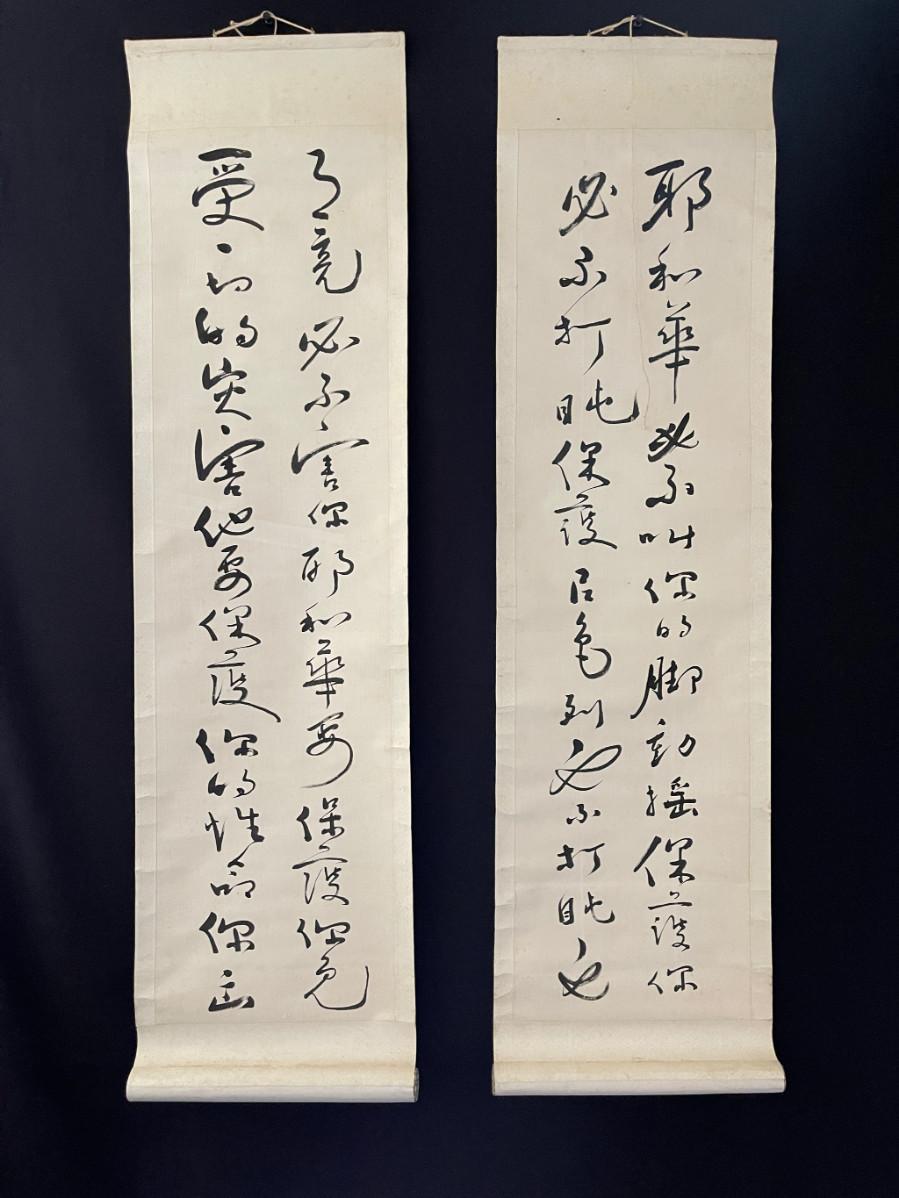 耶和華必不叫你的脚動搖保護你
必不打盹保護以色列也不打盹也
月亮必不害你耶和華要保護你免
受一切的災害他要保護你的性命你出